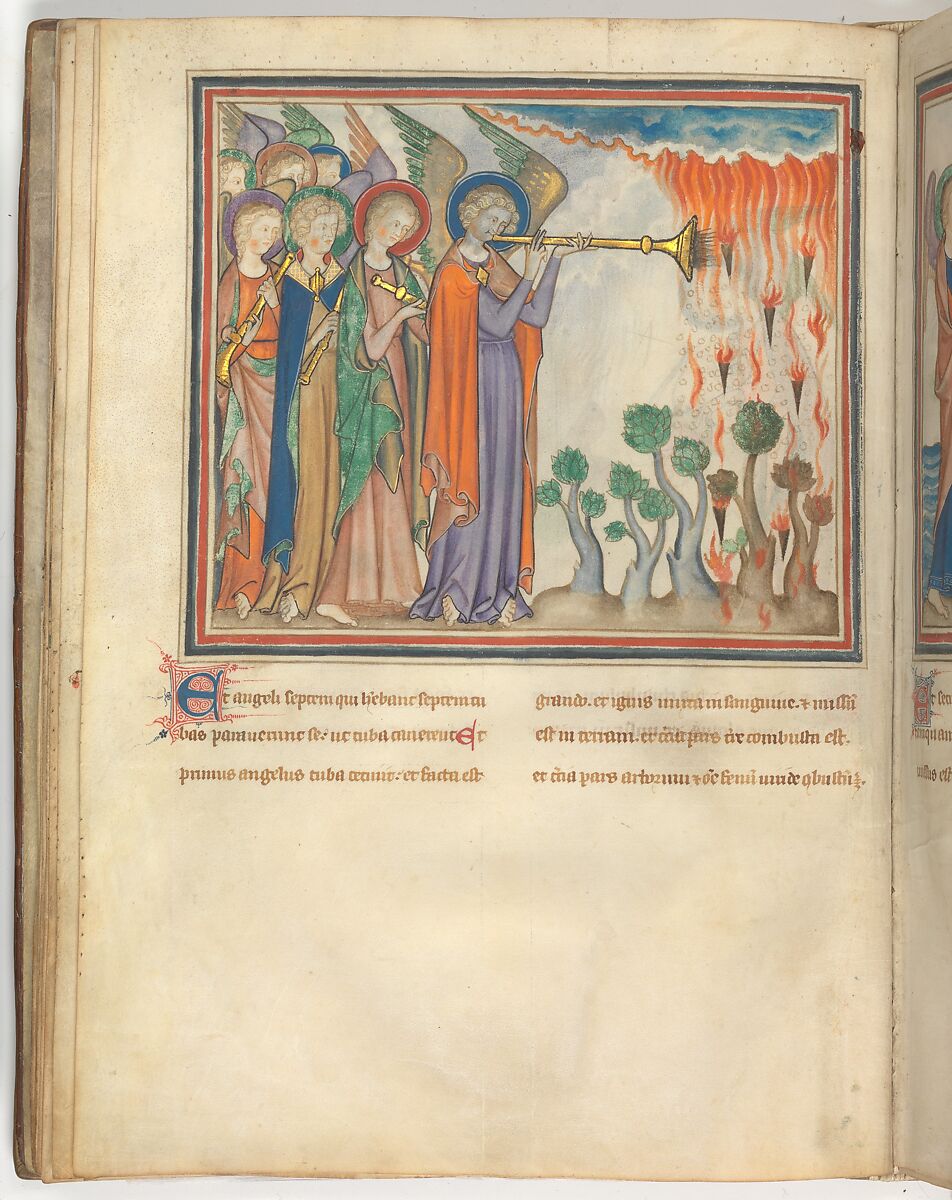 Et angeli septem qui hebant septem tu
bas parauerunt se. ut tuba canerent Et
primus angelus tuba cecinit. et facta est
grando. et ignis mixta in sanguine. & missū
est in terram. et tcīa pars tre combusta est.
et tcīa pars arborum & oē fenū uiride